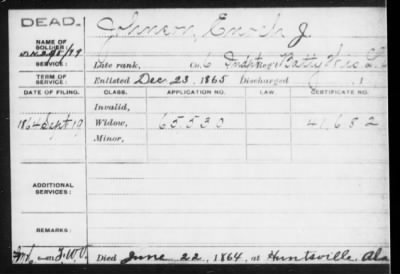 DEAD.
Johnson, Enoch J.
NAME OF SOLDIER:
SERVICE: Late rank, Co. 6 Indt Batty Wis L.
TERM OF SERVICE: Enlisted Dec. 23, 1865 Discharged , 1
DATE OF FILING. CLASS. APPLICATION NO. LAW. CERTIFICATE NO.
Invalid,
1864 Sept 19 Widow, 65.530 41,652
Minor,
ADDITIONAL SERVICES:
REMARKS:
Died June 22, 1864, at Huntsville Ala